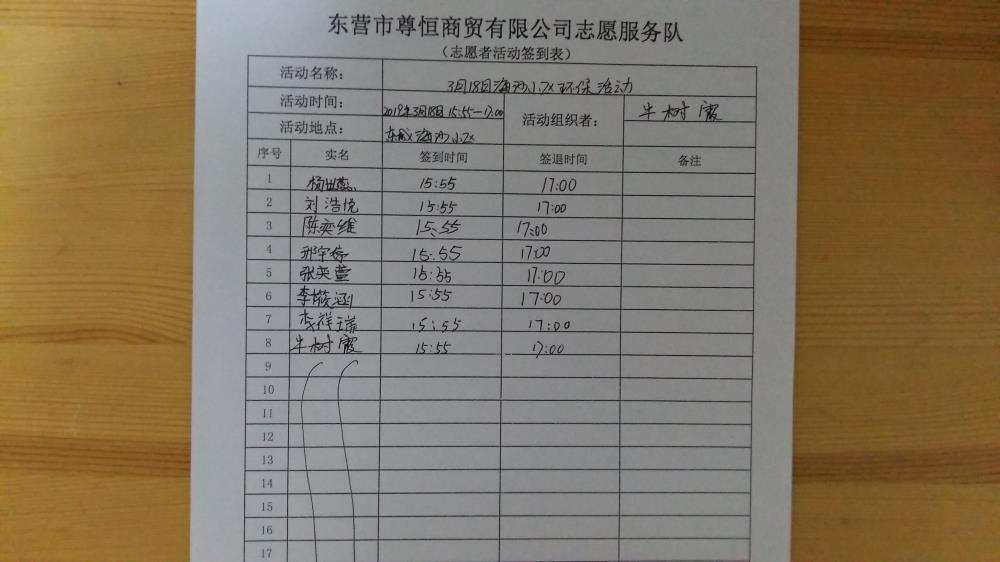 东营市尊恒商贸有限公司志愿服务队
(志愿者活动签到表)
活动名称： 3月18日海河小区环保活动
活动时间： 2019年3月18日 15:55—17:00 活动组织者： 牛树霞
活动地点： 东城海河小区
序号 实名 签到时间 签退时间 备注
1 15:55 17:00
2 刘浩悦 15:55 17:00
3 陈奕维 15:55 17:00
4 15:55 17:00
5 张奕萱 15:55 17:00
6 李筱涵 15:55 17:00
7 李祥瑞 15:55 17:00
8 牛树霞 15:55 17:00
9
10
11
12
13
14
15
16
17